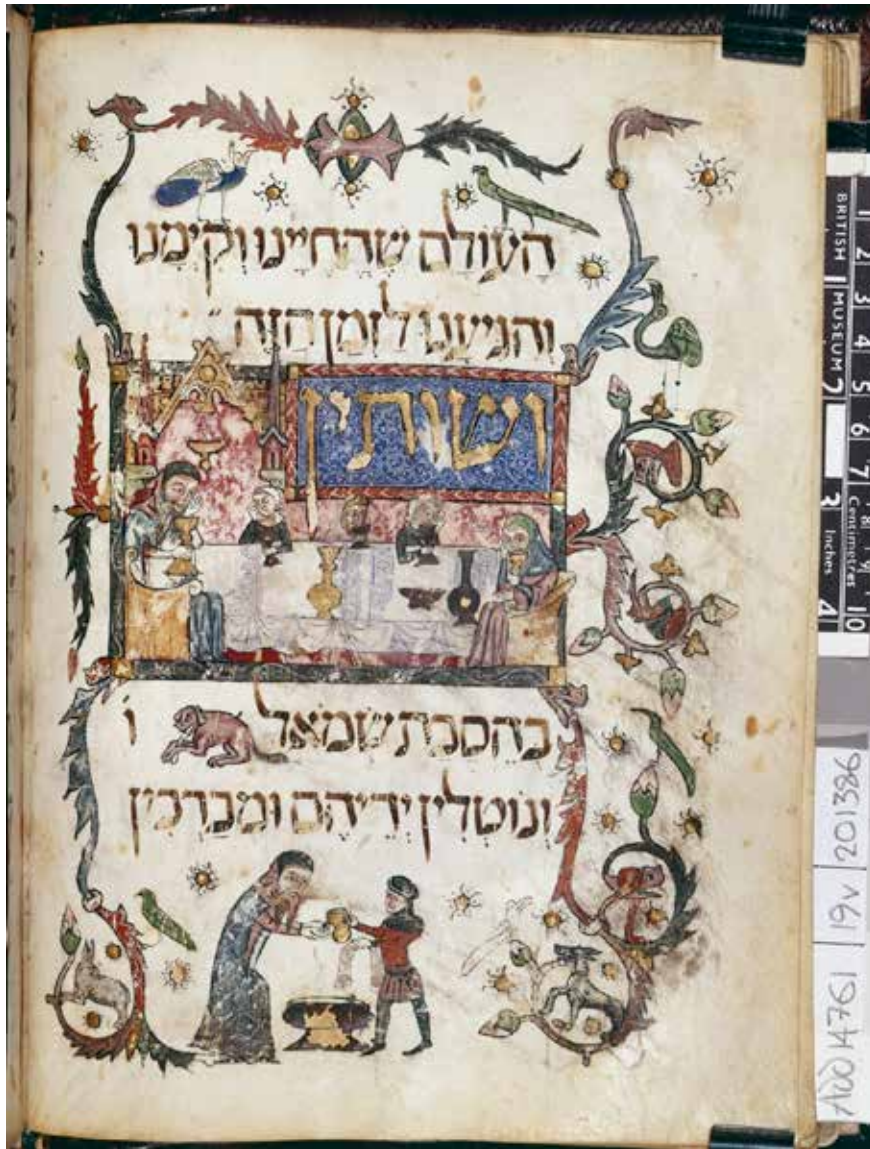 העולם שהחיינו וקימנו
והגיענו לזמן הזה
ושותין
בהסבת שמאל ו
ונוטלין ידיהם ומברכין
BRITISH 1 MUSEUM 2 3 Inches 4
1 2 3 4 5 6 7 8 9 10
Centimetres
ADD 14761 | 19v | 201386